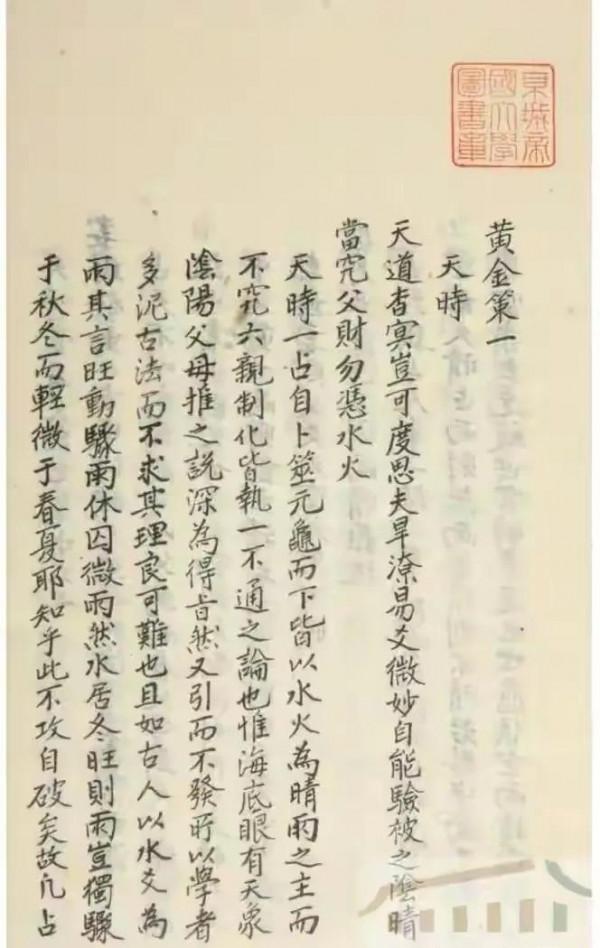 京城帝
國大學
圖書章
黃金策一
天時
天道杳冥豈可度思夫旱潦易爻微妙自能驗被之陰晴
當究父財勿憑水火
天時一占自卜筮元龜而下皆以水火為晴雨之主而
不究六親制化皆執一不通之論也惟海底眼有天象
陰陽父母推之説深為得旨然又引而不發所以學者
多泥古法而不求其理良可難也且如古人以水爻為
雨其言旺動驟雨休囚微雨然水居冬旺則雨豈獨驟
于秋冬而輕微于春夏耶知乎此不攻自破矣故凡占